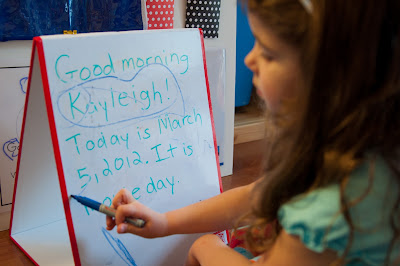 Good morning
Kayleigh!
Today is March
5, 2012. It is
day.